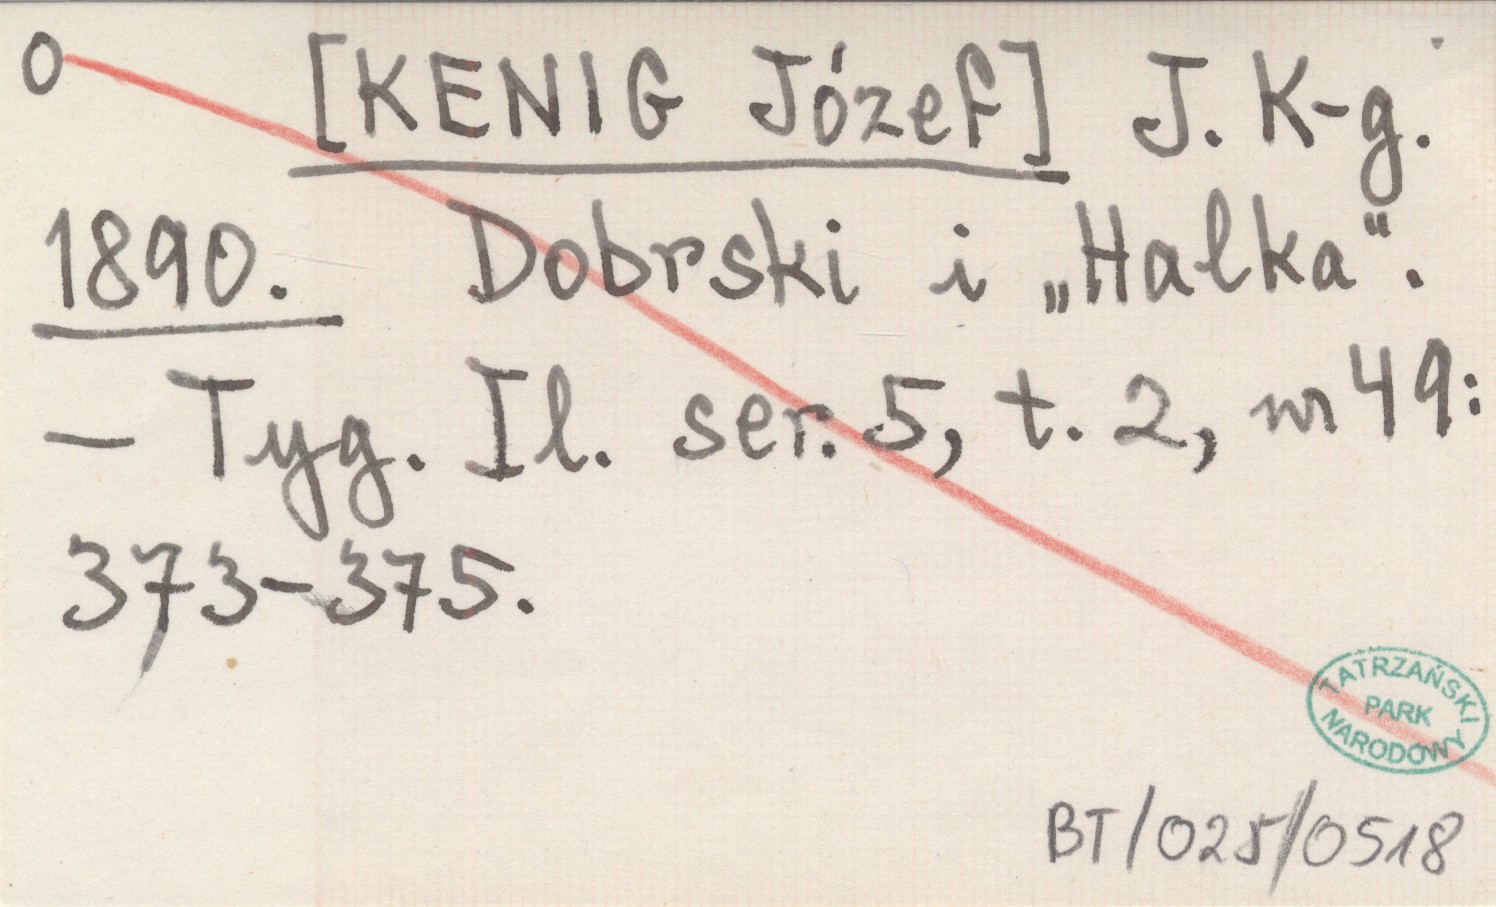 0 [KENIG Józef] J. K-g.
1890. Dobrski i „Halka".
— Tyg. Il. ser. 5, t. 2, nr 49:
373-375.
TATRZAŃSKI
PARK
NARODOWY
BT/025/0518